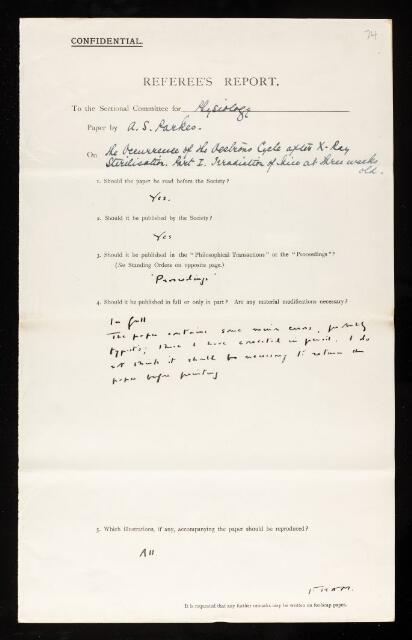 74
CONFIDENTIAL.
REFEREE'S REPORT.
To the Sectional Committee for Physiology
Paper by A. S. Parkes.
On The Occurrence of the Oestrous Cycle after X-Ray
Sterilisation. Part I. Irradiation of Mice at three weeks
old.
1. Should the paper be read before the Society?
Yes.
2. Should it be published by the Society?
Yes
3. Should it be published in the "Philosophical Transactions" or the "Proceedings"?
(See Standing Orders on opposite page.)
'Proceedings'
4. Should it be published in full or only in part? Are any material modifications necessary?
In full
The paper contains some minor errors, probably
typist's; these I have corrected in pencil. I do
not think it should be necessary to return the
paper before printing
5. Which illustrations, if any, accompanying the paper should be reproduced?
All
FHAM.
It is requested that any further remarks may be written on foolscap paper.